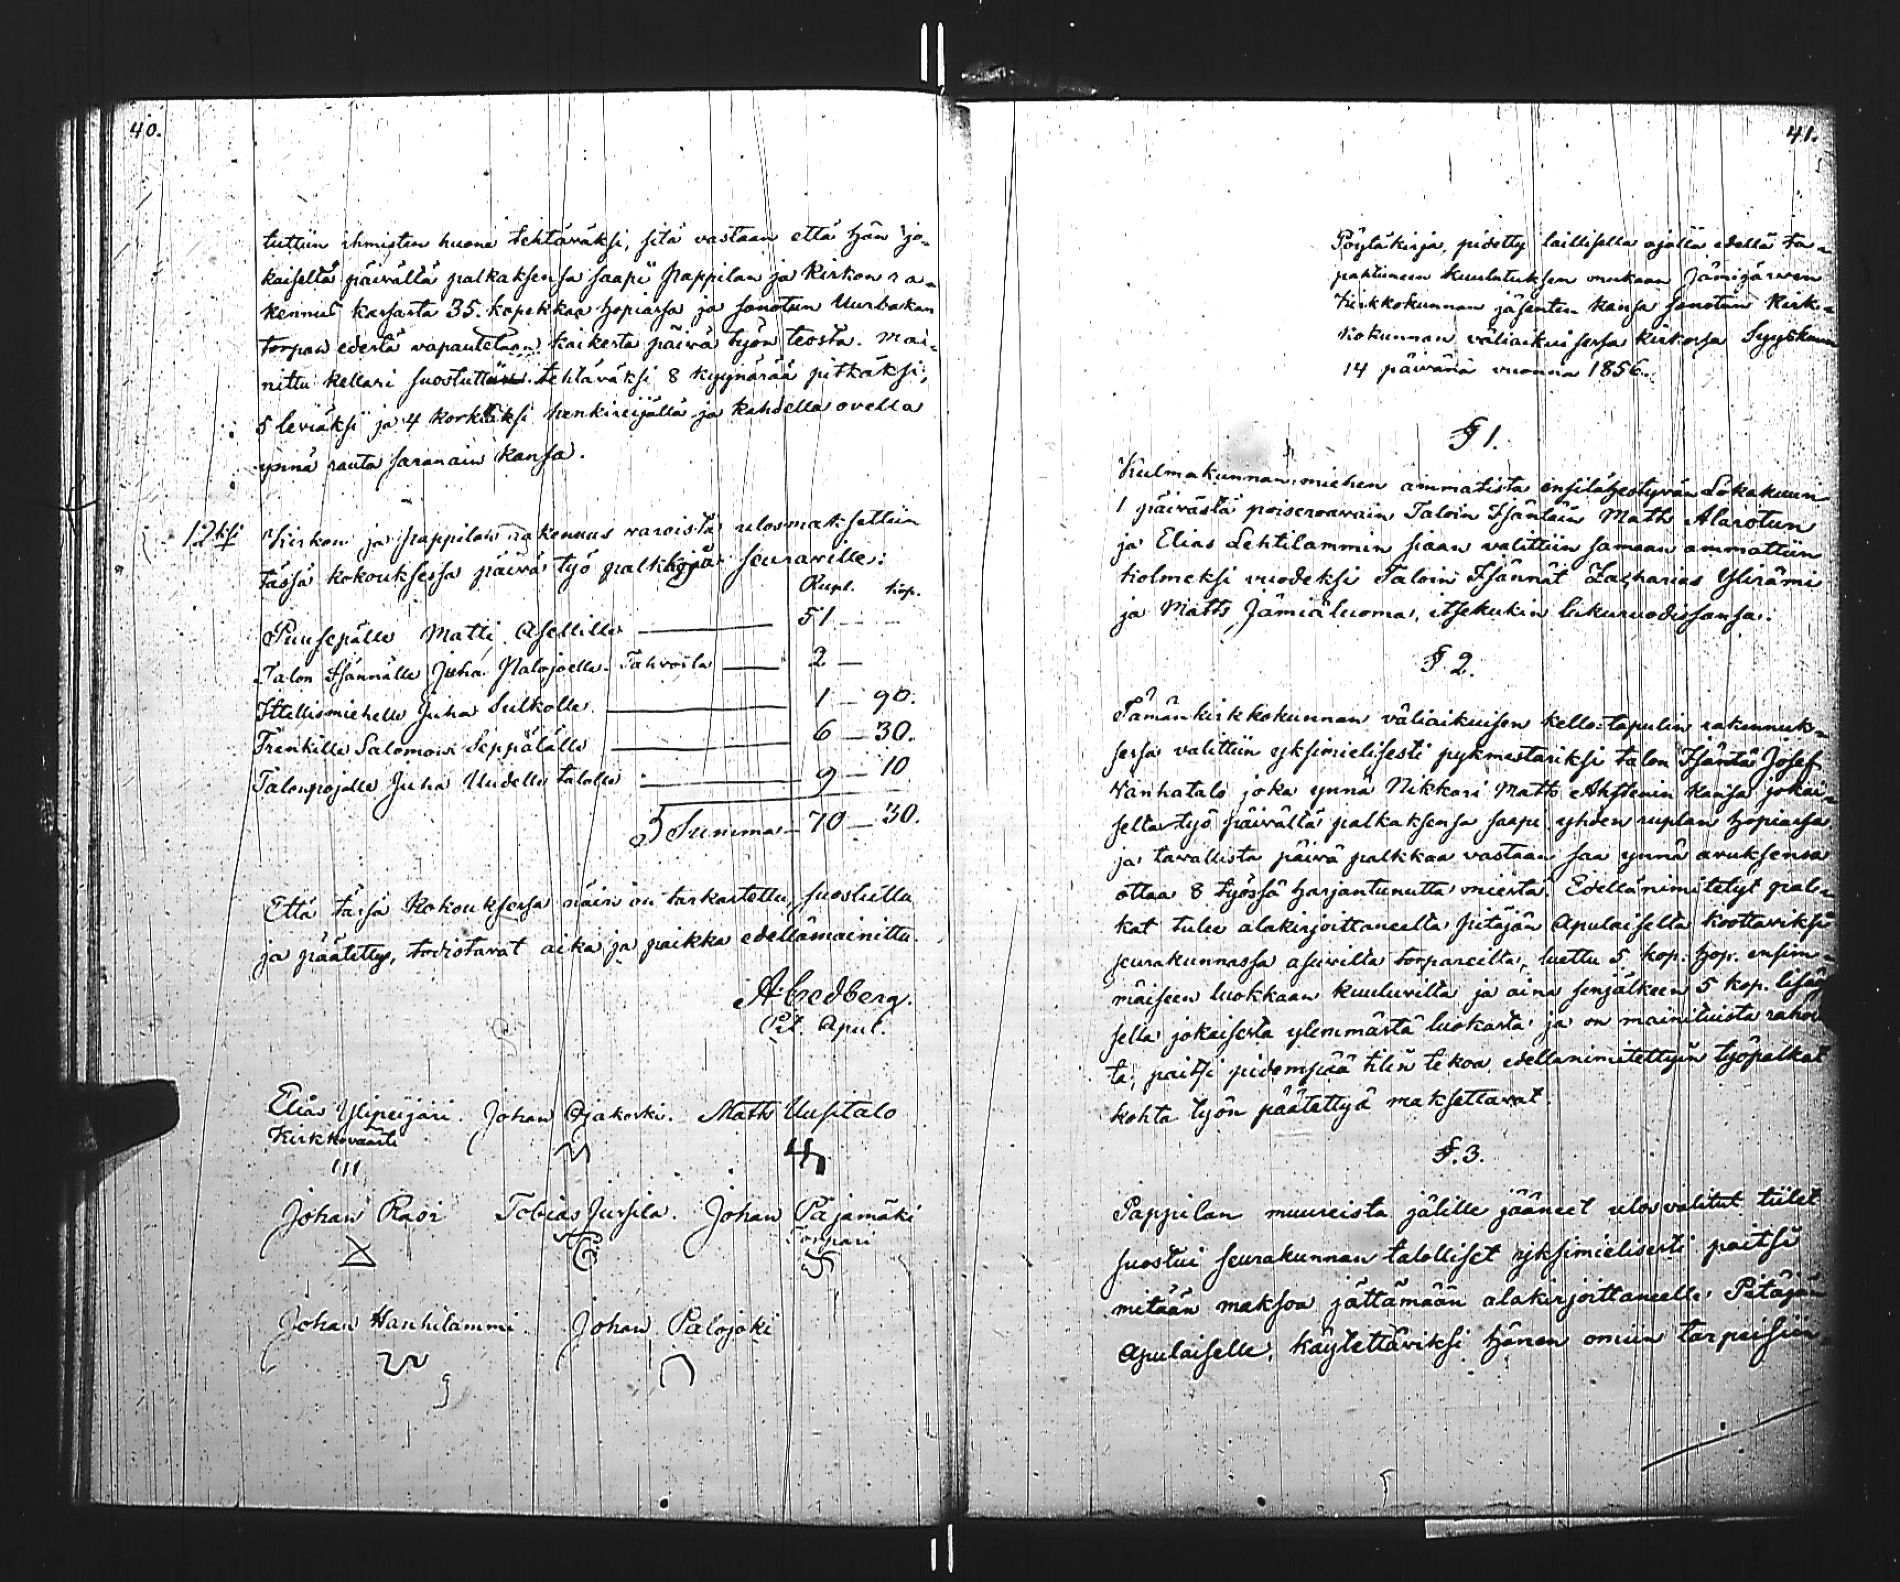 40.
tuttiin ihmisten huone tehtäväksi, sitä vastaan että hän jo-
kaiselta päivältä palkaksensa saapi Pappilan ja Kirkon ra-
kennus kassasta 35. kopekkaa hopiassa ja sanotun Uurbakan
torpan edestä vapautetaan kaikesta päivä työn teosta. Mai-
nittu kellari suostuttiin tehtäväksi 8 kyynärää pitkäksi,
5 leviäksi ja 4 korkiaksi henkireijällä ja kahdella ovella
ynnä rauta saranain kansa.
12ksi Kirkon ja pappilan rakennus varoista ulosmaksettiin
tässä kokouksessa päivä työ palkkoja seuraville:
Rupl. kop.
Puusepälle Matti Asellille 51
Talon Isännälle Juha Palojoelle Tahvoila 2
Ittellismiehelle Juha Sulkolle 1 90.
Trenkille Salomon Seppälälle 6 30.
Talonpojalle Juha Uudelle talolle 9 10
Summa 70 30.
Että tässä Kokouksessa näin on tarkastettu, suostuttu
ja päätetty, todistavat aika ja paikka edellämainittu.
A. Cedberg.
Pit. Apul.
Elias Ylipeijari. Johan Ojakoski. Matts Uusitalo
Kirkkoväärti
Johan Raoi Tobias Jussila. Johan Pajamäki
Torppari
Johan Hanhilammi Johan Palojoki
41.
Pöytäkirja, pidetty laillisella ajalla edellä ta-
pahtuneen kuulutuksen mukaan Jämijärwen
kirkkokunnan jäsenten kansa sanotun Kirk-
kokunnan väliaikuisessa kirkossa Syyskuun
14 päivänä vuonna 1856.
§ 1.
Kulmakunnan miehen ammatista ensilähestyvän Lokakuun
1 päivästä poiseroavain Taloin Isäntäin Matts Alarotun
ja Elias Lehtilammin siaan valittiin samaan ammattiin
kolmeksi vuodeksi Taloin Isännät Zacharias Ylirämi
ja Matts Jämiäluoma, itsekukin lukuruodissansa.
§. 2.
Tämän kirkkokunnan väliaikuisen kello-tapulin rakennuk-
sessa valittiin yksimielisesti pykmestariksi talon Isäntä Josef
Vanhatalo joka ynnä Nikkari Matts Ahstenin kansa jokai-
selta työ päivältä palkaksensa saapi yhden ruplan hopiassa
ja tavallista päivä palkkaa vastaan saa ynnä avuksensa
ottaa 8 työssä harjantunutta miestä. Edellänimitetyt pal-
kat tulee alakirjoittaneelta Pitäjän Apulaiselta koottaviksi
seurakunnassa asuvilta torpareilta, luettu 5 kop. hop. ensim-
mäiseen luokkaan kuuluvilta ja aina senjälkeen 5 kop. lisäy
sellä jokaisesta ylemmästä luokasta ja on mainituista rahoi
ta, paitsi pidempää tilin tekoa edellänimitettyin työpalkat
kohta työn päätettyä maksettavat.
§. 3.
Pappilan muureista jälille jääneet ulosvalitut tiilet
suostui seurakunnan talolliset yksimielisesti paitsi
mitään maksoa jättämään alakirjoittaneelle Pitäjän
Apulaiselle, käytettäviksi hänen omiin tarpeisiin